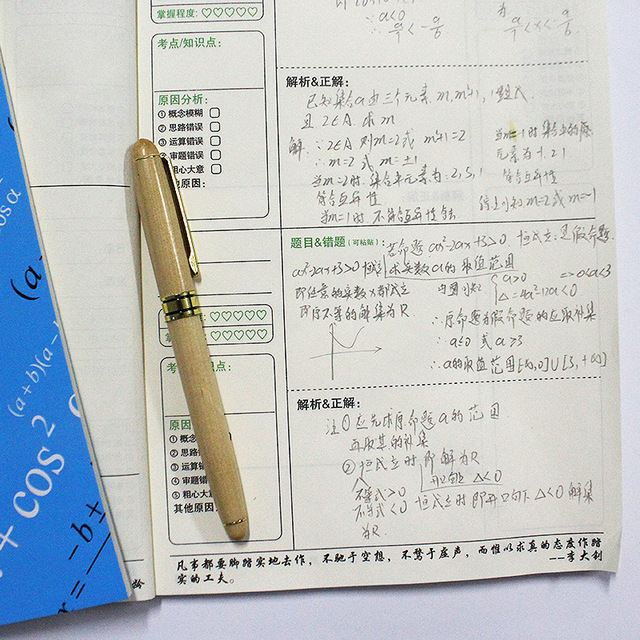 掌握程度: ♡♡♡♡♡
∴a<0
考点/知识点:
原因分析:
① 概念模糊
② 思路错误
③ 运算错误
④ 审题错误
粗心大意
他原因:
解析&正解:
已知集合a由三个元素 m, m²+1, 1
且 2∈A 求m
解: ∵2∈A 则m=2或 m²+1=2
∴m=2 或 m=±1
当m=2时 集合中元素为: 2, 5, 1
符合互异性
当m=1时 不符合互异性 舍
元素为
符合互异性
综上可知m=2或m=-1
题目&错题(可粘贴):
若命题 ax²-2ax+3>0 恒成立 是假命题
求实数a的取值范围
ax²-2ax+3>0 恒成
即任意的实数x都成立
即原不等的解集为R
a>0
=> 0<a<3
△=4a²-12a<0
∴原命题为假命题的应取补集
∴a≤0 或 a≥3
∴a的取值范围
解析&正解:
注①应先求原命题a的范围
再取其的补集
②恒成立时 即解为R
△<0
不等式>0
不等式<0 恒成立时 即开口向下△<0 解集
为R
♡♡♡♡♡
♡♡♡♡♡
原因
① 概念
② 思路
③ 运算错
④ 审题错
⑤ 粗心大
其他原因:
凡事都要脚踏实地去作,不驰于空想,不骛于虚声,而惟以求真的态度作踏
实的工夫。 --李大钊
cosα
(a-
(a+b)(a-
+ cos 2
x= -b±